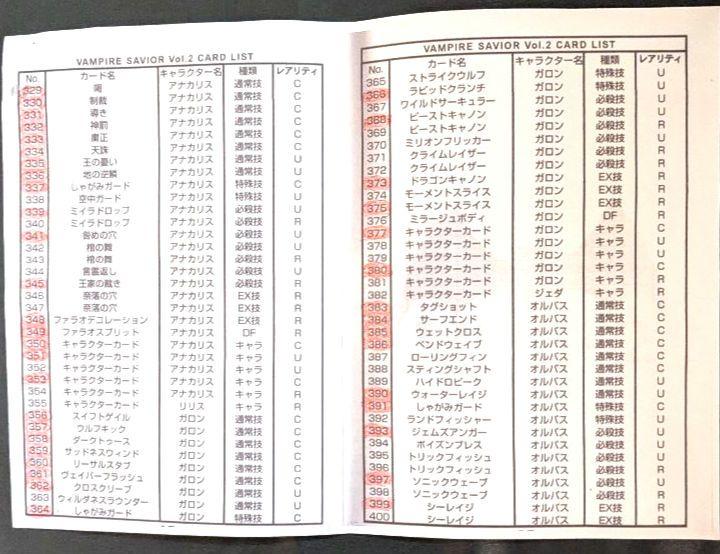 VAMPIRE SAVIOR Vol.2 CARD LIST
No. カード名 キャラクター名 種類 レアリティ
329 喝 アナカリス 通常技 C
330 制裁 アナカリス 通常技 C
331 導き アナカリス 通常技 C
332 神罰 アナカリス 通常技 C
333 粛正 アナカリス 通常技 C
334 天誅 アナカリス 通常技 C
335 王の憂い アナカリス 通常技 U
336 地の逆鱗 アナカリス 通常技 U
337 しゃがみガード アナカリス 特殊技 C
338 空中ガード アナカリス 特殊技 U
339 ミイラドロップ アナカリス 必殺技 U
340 ミイラドロップ アナカリス 必殺技 R
341 咎めの穴 アナカリス 必殺技 U
342 棺の舞 アナカリス 必殺技 U
343 棺の舞 アナカリス 必殺技 R
344 言霊返し アナカリス 必殺技 U
345 王家の裁き アナカリス 必殺技 R
346 奈落の穴 アナカリス EX技 R
347 奈落の穴 アナカリス EX技 R
348 ファラオデコレーション アナカリス EX技 R
349 ファラオスプリット アナカリス DF R
350 キャラクターカード アナカリス キャラ C
351 キャラクターカード アナカリス キャラ U
352 キャラクターカード アナカリス キャラ U
353 キャラクターカード アナカリス キャラ C
354 キャラクターカード アナカリス キャラ R
355 キャラクターカード リリス キャラ R
356 スイフトゲイル ガロン 通常技 C
357 ウルフキック ガロン 通常技 C
358 ダークトゥース ガロン 通常技 C
359 サッドネスウィンド ガロン 通常技 C
360 リーサルスタブ ガロン 通常技 C
361 ヴェイパーフラッシュ ガロン 通常技 C
362 クロスクリーブ ガロン 通常技 U
363 ウィルダネスラウンター ガロン 通常技 U
364 しゃがみガード ガロン 特殊技 C
VAMPIRE SAVIOR Vol.2 CARD LIST
No. カード名 キャラクター名 種類 レアリティ
365 ストライクウルフ ガロン 特殊技 U
366 ラピッドクランチ ガロン 特殊技 U
367 ワイルドサーキュラー ガロン 必殺技 U
368 ビーストキャノン ガロン 必殺技 U
369 ビーストキャノン ガロン 必殺技 R
370 ミリオンフリッカー ガロン 必殺技 U
371 クライムレイザー ガロン 必殺技 U
372 クライムレイザー ガロン 必殺技 R
373 ドラゴンキャノン ガロン EX技 R
374 モーメントスライス ガロン EX技 R
375 モーメントスライス ガロン EX技 R
376 ミラージュボディ ガロン DF R
377 キャラクターカード ガロン キャラ C
378 キャラクターカード ガロン キャラ U
379 キャラクターカード ガロン キャラ U
380 キャラクターカード ガロン キャラ C
381 キャラクターカード ガロン キャラ R
382 キャラクターカード ジェダ キャラ R
383 タグショット オルバス 通常技 C
384 サーフエンド オルバス 通常技 C
385 ウェットクロス オルバス 通常技 C
386 ベンドウェイブ オルバス 通常技 C
387 ローリングフィン オルバス 通常技 C
388 スティングシャフト オルバス 通常技 C
389 ハイドロピーク オルバス 通常技 U
390 ウォーターレイジ オルバス 通常技 U
391 しゃがみガード オルバス 特殊技 C
392 ランドフィッシャー オルバス 特殊技 U
393 ジェムズアンガー オルバス 必殺技 U
394 ポイズンブレス オルバス 必殺技 U
395 トリックフィッシュ オルバス 必殺技 U
396 トリックフィッシュ オルバス 必殺技 R
397 ソニックウェーブ オルバス 必殺技 U
398 ソニックウェーブ オルバス 必殺技 R
399 シーレイジ オルバス EX技 R
400 シーレイジ オルバス EX技 R